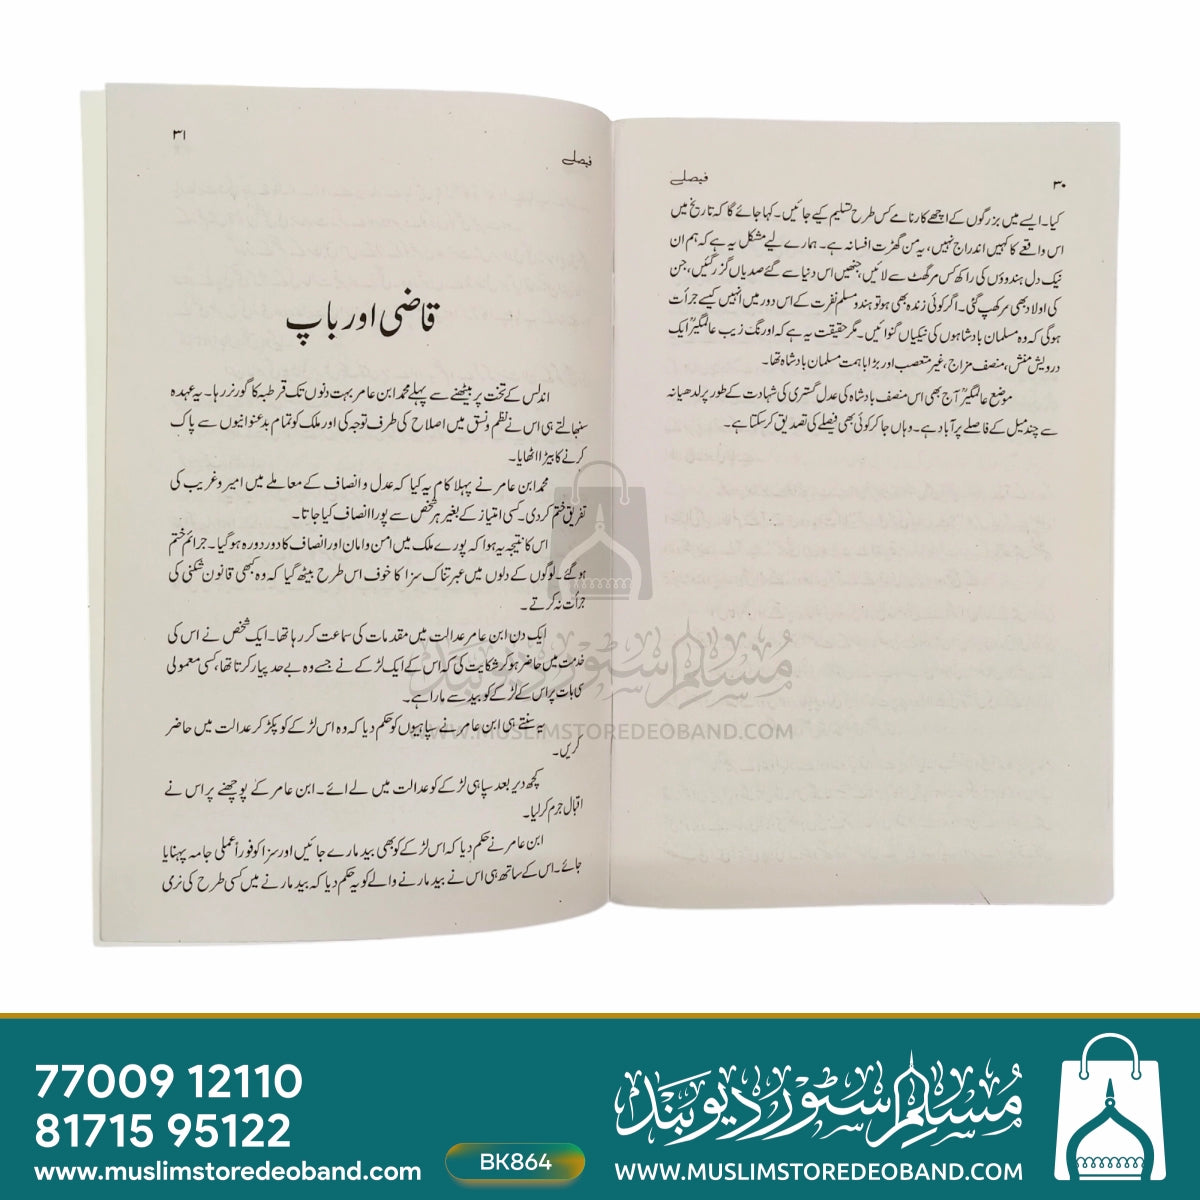 ۳۰
فیصلے
کیا۔ ایسے میں بزرگوں کے اچھے کارنامے کس طرح تسلیم کیے جائیں۔ کہا جائے گا کہ تاریخ میں
اس واقعے کا کہیں اندراج نہیں، یہ من گھڑت افسانہ ہے۔ ہمارے لیے مشکل یہ ہے کہ ہم ان
نیک دل ہندوؤں کی راکھ کس مرگھٹ سے لائیں، جنھیں اس دنیا سے گئے صدیاں گزر گئیں، جن
کی اولاد بھی مر کھپ گئی۔ اگر کوئی زندہ بھی ہو تو ہندو مسلم نفرت کے اس دور میں انہیں کیسے جرأت
ہوگی کہ وہ مسلمان بادشاہوں کی نیکیاں گنوائیں۔ مگر حقیقت یہ ہے کہ اورنگ زیب عالمگیرؒ ایک
درویش منش، منصف مزاج، غیر متعصب اور بڑا باہمت مسلمان بادشاہ تھا۔
موضع عالمگیرؒ آج بھی اس منصف بادشاہ کی عدل گستری کی شہادت کے طور پر لدھیانہ
سے چند میل کے فاصلے پر آباد ہے۔ وہاں جا کر کوئی بھی فیصلے کی تصدیق کر سکتا ہے۔
۳۱
فیصلے
قاضی اور باپ
اندلس کے تخت پر بیٹھنے سے پہلے محمد ابن عامر بہت دنوں تک قرطبہ کا گورنر رہا۔ یہ عہدہ
سنبھالتے ہی اس نے نظم و نسق میں اصلاح کی طرف توجہ کی اور ملک کو تمام بدعنوانیوں سے پاک
کرنے کا بیڑا اٹھایا۔
محمد ابن عامر نے پہلا کام یہ کیا کہ عدل و انصاف کے معاملے میں امیر و غریب کی
تفریق ختم کر دی۔ کسی امتیاز کے بغیر ہر شخص سے پورا انصاف کیا جاتا۔
اس کا نتیجہ یہ ہوا کہ پورے ملک میں امن و امان اور انصاف کا دور دورہ ہوگیا۔ جرائم ختم
ہو گئے۔ لوگوں کے دلوں میں عبرتناک سزا کا خوف اس طرح بیٹھ گیا کہ وہ کبھی قانون شکنی کی
جرأت نہ کرتے۔
ایک دن ابن عامر عدالت میں مقدمات کی سماعت کر رہا تھا۔ ایک شخص نے اس کی
خدمت میں حاضر ہو کر شکایت کی کہ اس کے ایک لڑکے نے جسے وہ بے حد پیار کرتا تھا، کسی معمولی
سی بات پر اس کے لڑکے کو بید سے مارا ہے۔
یہ سنتے ہی ابن عامر نے سپاہیوں کو حکم دیا کہ وہ اس لڑکے کو پکڑ کر عدالت میں حاضر
کریں۔
کچھ دیر بعد سپاہی لڑکے کو عدالت میں لے آئے۔ ابن عامر کے پوچھنے پر اس نے
اقبال جرم کر لیا۔
ابن عامر نے حکم دیا کہ اس لڑکے کو بھی بید مارے جائیں اور سزا کو فوراً عملی جامہ پہنایا
جائے۔ اس کے ساتھ ہی اس نے بید مارنے والے کو یہ حکم دیا کہ بید مارنے میں کسی طرح کی نرمی
مسلم سٹور دیوبند
WWW.MUSLIMSTOREDEOBAND.COM
77009 12110
81715 95122
www.muslimstoredeoband.com
BK864
مسلم سٹور دیوبند
WWW.MUSLIMSTOREDEOBAND.COM